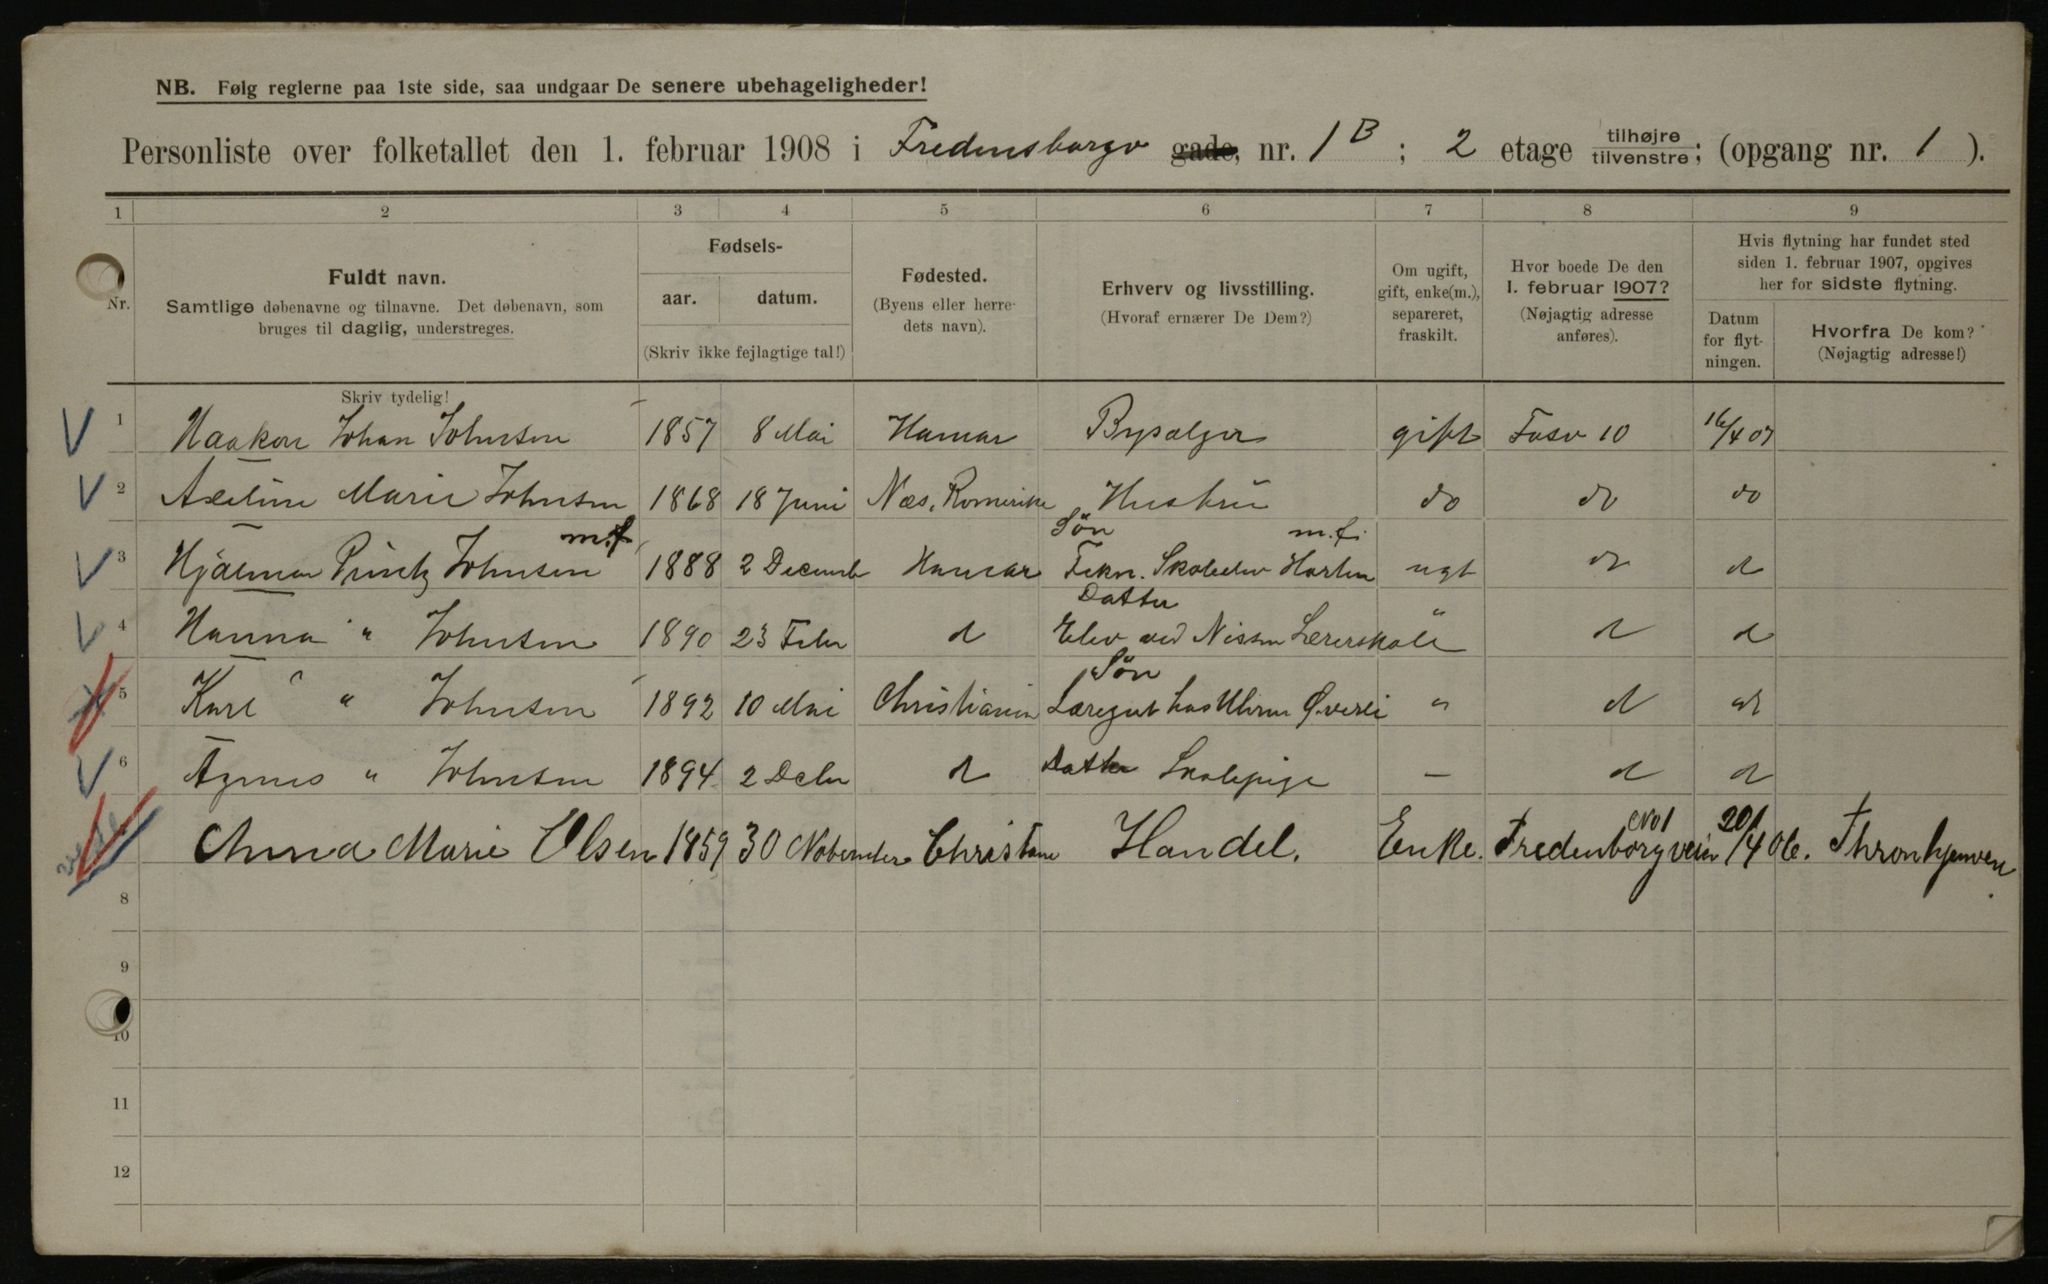 NB. Følg reglerne paa 1ste side, saa undgaar De senere ubehageligheder!
Personliste over folketallet den 1. februar 1908 i Fredensborgv gade, nr. 1 B ; 2 etage tilhøjre tilvenstre; (opgang nr. 1 ).
1 2 3 4 5 6 7 8 9
Nr.
Fuldt navn.
Samtlige døbenavne og tilnavne. Det døbenavn, som
bruges til daglig, understreges.
Fødsels-
aar. datum.
(Skriv ikke fejlagtige tal!)
Fødested.
(Byens eller herre-
dets navn).
Erhverv og livsstilling.
(Hvoraf ernærer De Dem?)
Om ugift,
gift, enke(m.),
separeret,
fraskilt.
Hvor boede De den
1. februar 1907?
(Nøjagtig adresse
anføres).
Hvis flytning har fundet sted
siden 1. februar 1907, opgives
her for sidste flytning.
Datum
for flyt-
ningen.
Hvorfra De kom?
(Nøjagtig adresse!)
Skriv tydelig!
1 Haakon Johan Johnsen 1857 8 Mai Hamar Bysælger gift Fosv 10 16/4 07
2 Axeline Marie Johnsen 1868 18 Juni Næs, Romerike Hustru do do do
m.f. Søn m.f.
3 Hjalmar Printz Johnsen 1888 2 Decemb Hamar Tekn. Skoleelev Horten ugt d d
Datter
4 Hanna " Johnsen 1890 23 Febr d Elev ved Nissen Lærerskole " d d
Søn
5 Karl " Johnsen 1892 10 Mai Christiania Læregut hos Uhrm Øverli " d d
6 Agnes " Johnsen 1894 2 Decbr d Datter Skolepige — d d
No 1
Anna Marie Olsen 1859 30 November Christiania Handel. Enke. Fredenborgveien 20/4 06. Thronhjemvein
8
9
10
11
12